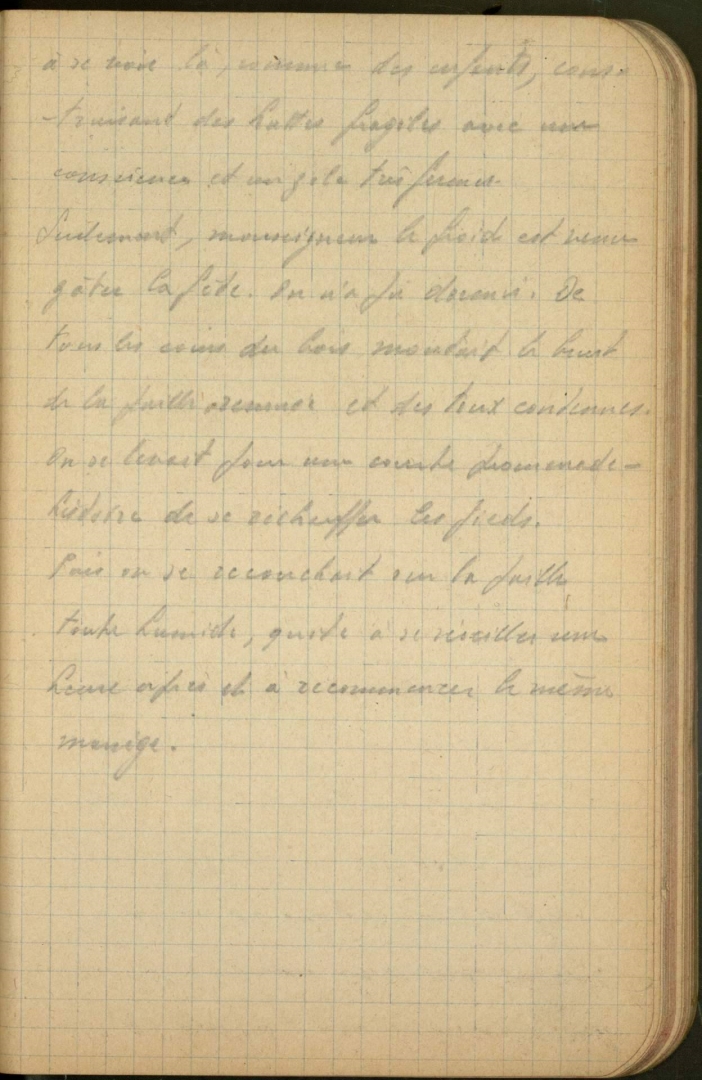 à se voir là, comme des enfants, cons-
-truisant des huttes fragiles avec une
conscience et un zèle très fermes.
Seulement, monseigneur le froid est venu
gâter la fête. On n'a pu dormir. De
tous les coins du bois montait le bruit
de la paille remuée et des toux contenues.
On se levait pour une courte promenade -
histoire de se réchauffer les pieds.
Puis on se recouchait sur la paille
toute humide, quitte à se réveiller une
heure après et à recommencer le même
manège.